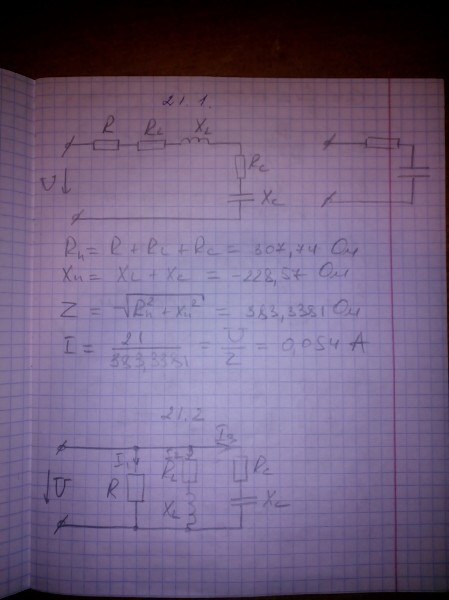 21.1.
R RL XL
RC
U
XC
Rн = R + RL + RC = 307,74 Ом
Xн = XL + XC = -228,57 Ом
Z = √Rн² + Xн² = 383,3381 Ом
I = 21/383,3381 = U/Z = 0,054 А
21.2
I1 I3
U R RL RC
XL XC